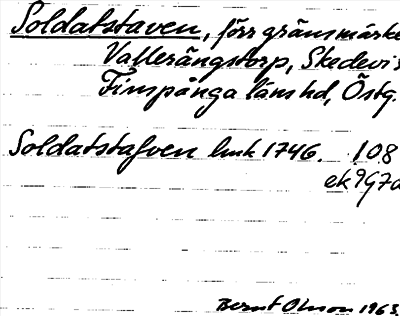 Soldatstaven, förr gränsmärke
Vallerängstorp, Skedevi s
Finspånga läns hd, Östg.
Soldatstafven lmk 1746. 108
ek 9G7d
Bernt Olsson 1963.